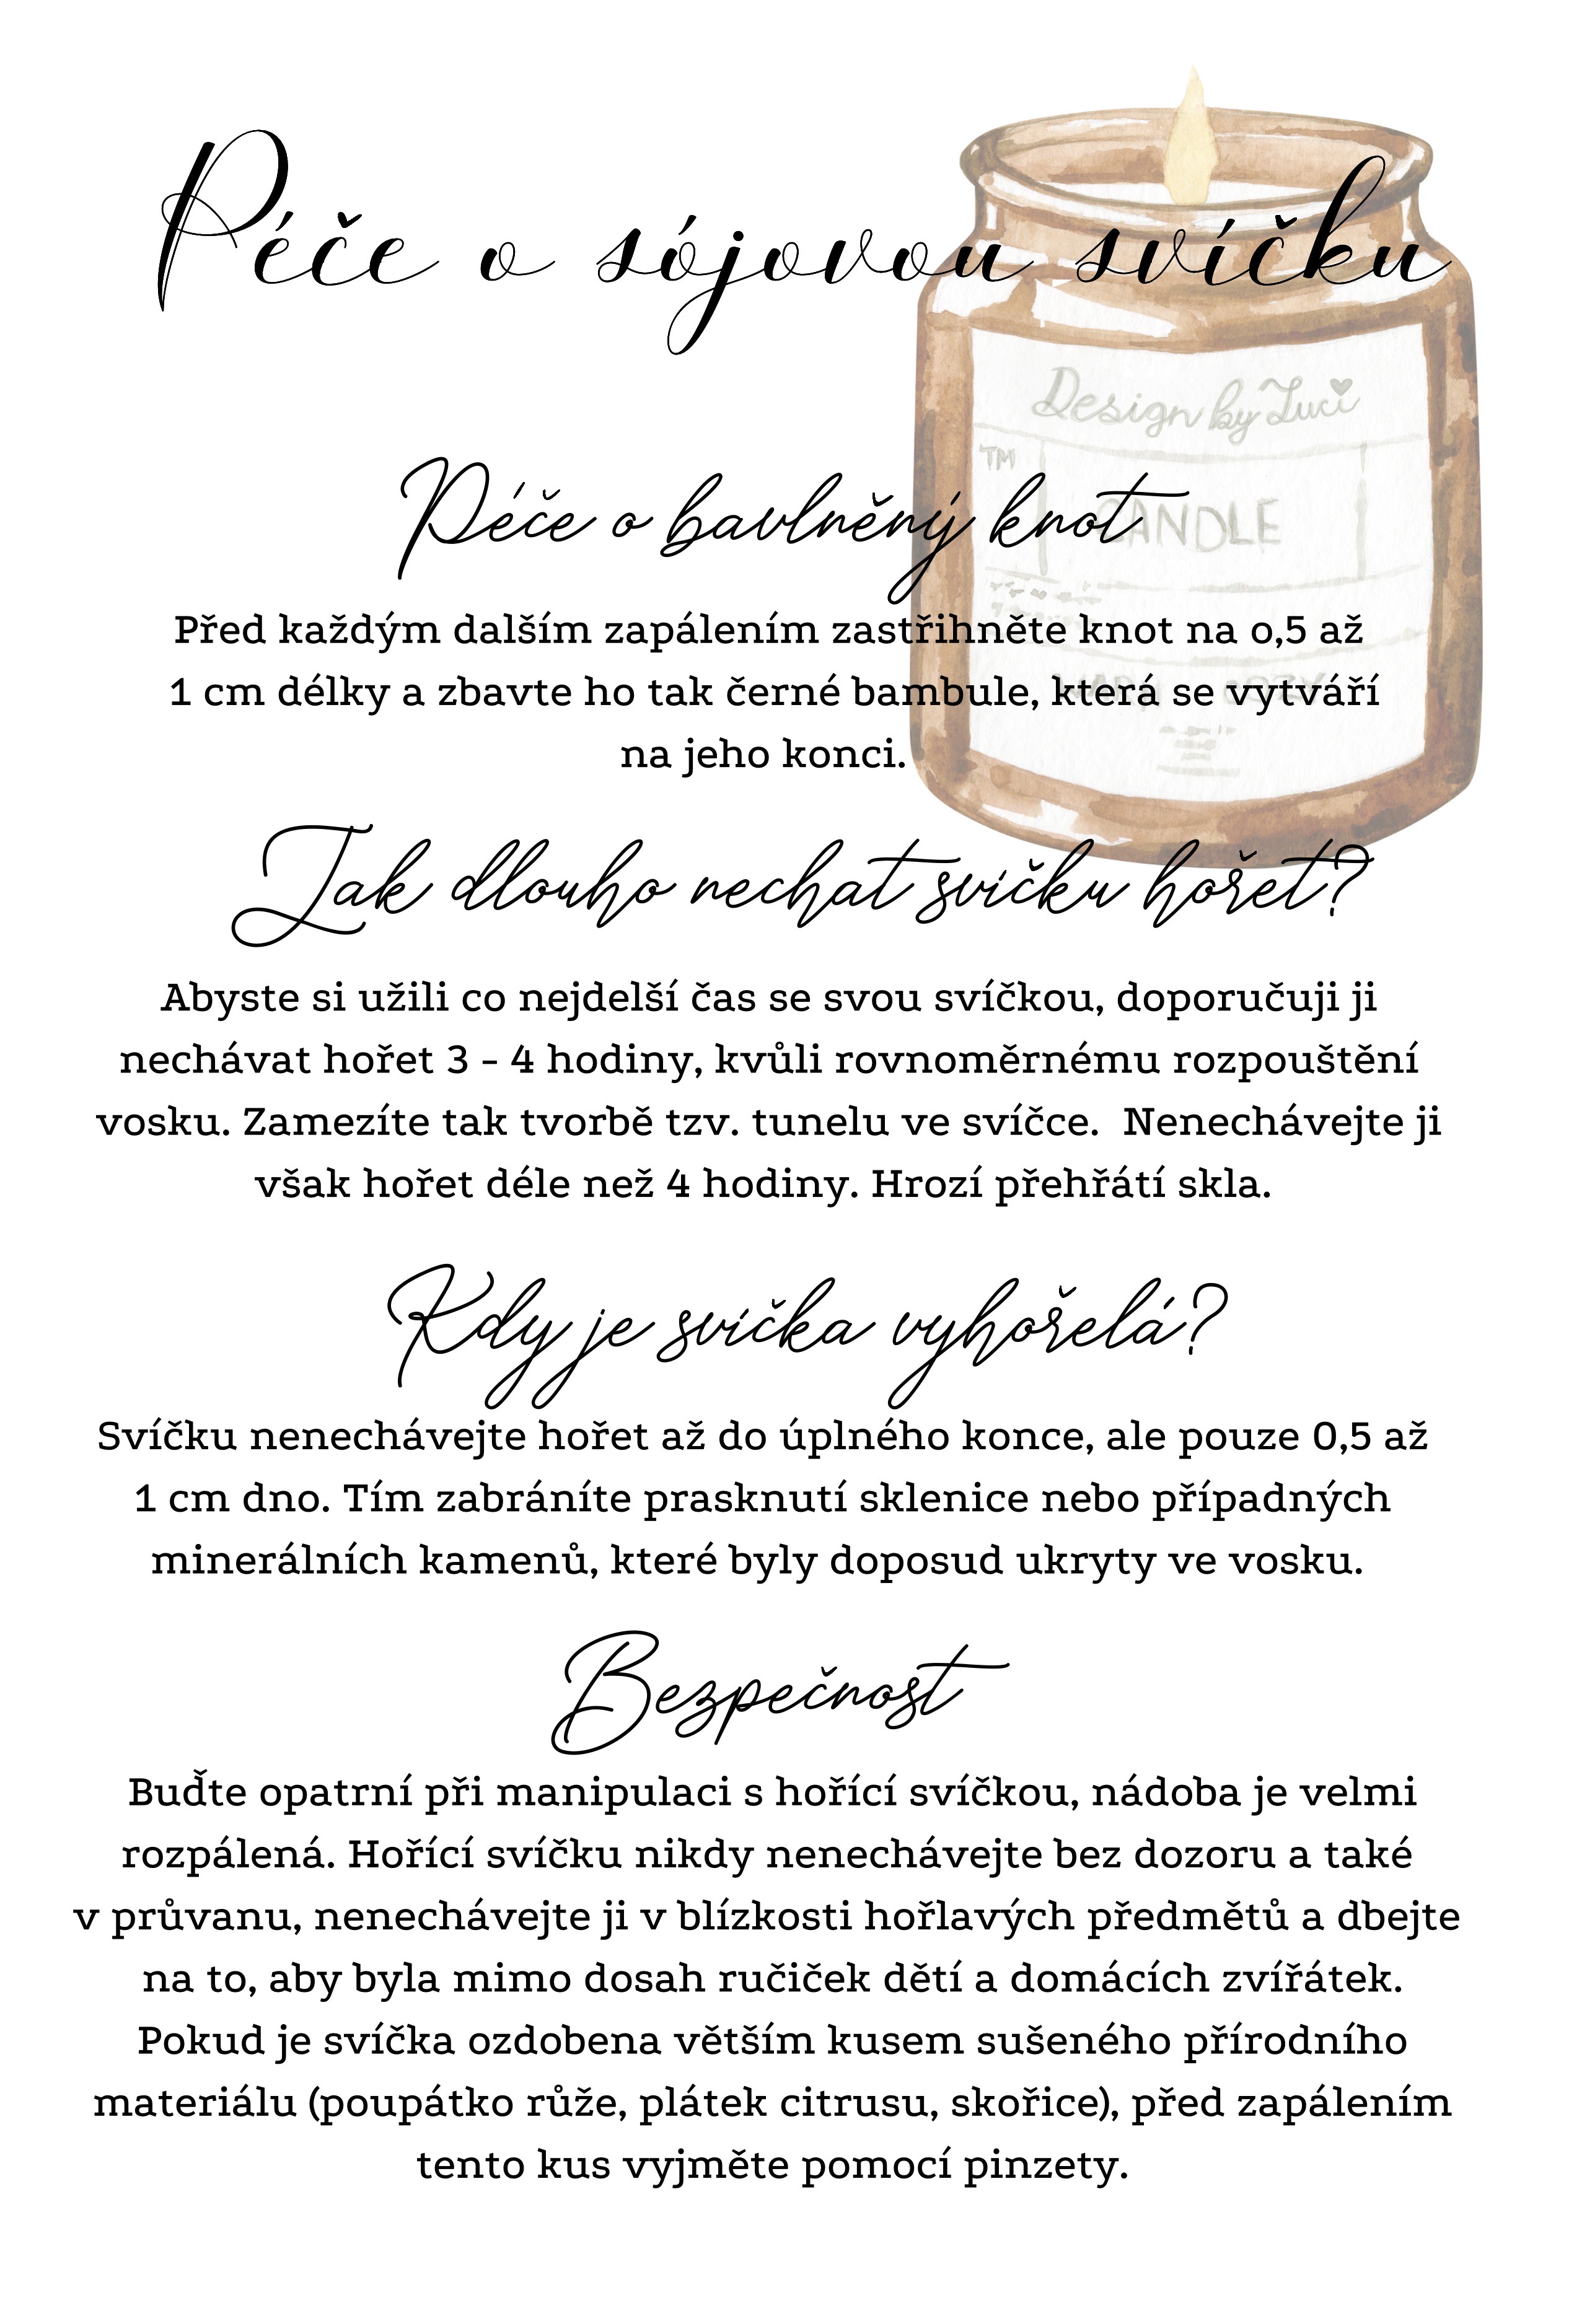 Péče o sójovou svíčku
Design by Luci
TM
CANDLE
Péče o bavlněný knot
Před každým dalším zapálením zastřihněte knot na 0,5 až
1 cm délky a zbavte ho tak černé bambule, která se vytváří
na jeho konci.
Jak dlouho nechat svíčku hořet?
Abyste si užili co nejdelší čas se svou svíčkou, doporučuji ji
nechávat hořet 3 - 4 hodiny, kvůli rovnoměrnému rozpouštění
vosku. Zamezíte tak tvorbě tzv. tunelu ve svíčce. Nenechávejte ji
však hořet déle než 4 hodiny. Hrozí přehřátí skla.
Kdy je svíčka vyhořelá?
Svíčku nenechávejte hořet až do úplného konce, ale pouze 0,5 až
1 cm dno. Tím zabráníte prasknutí sklenice nebo případných
minerálních kamenů, které byly doposud ukryty ve vosku.
Bezpečnost
Buďte opatrní při manipulaci s hořící svíčkou, nádoba je velmi
rozpálená. Hořící svíčku nikdy nenechávejte bez dozoru a také
v průvanu, nenechávejte ji v blízkosti hořlavých předmětů a dbejte
na to, aby byla mimo dosah ručiček dětí a domácích zvířátek.
Pokud je svíčka ozdobena větším kusem sušeného přírodního
materiálu (poupátko růže, plátek citrusu, skořice), před zapálením
tento kus vyjměte pomocí pinzety.